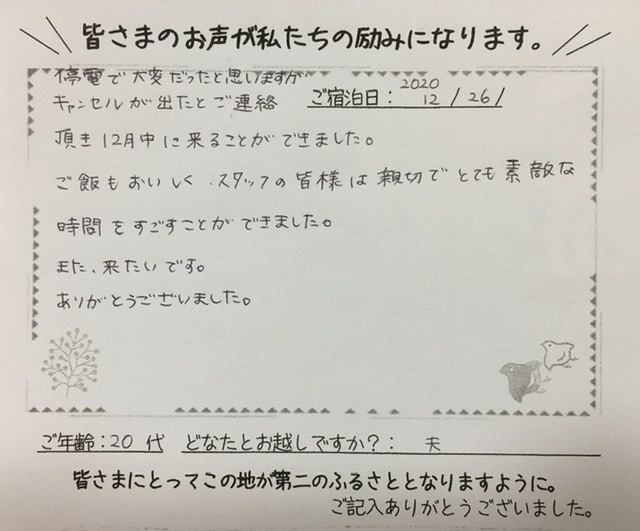 皆さまのお声が私たちの励みになります。
停電で大変だったと思いますが
キャンセルが出たとご連絡
ご宿泊日：2020 12/26/
頂き12月中に来ることができました。
ご飯もおいしく、スタッフの皆様は親切でとても素敵な
時間をすごすことができました。
また、来たいです。
ありがとうございました。
ご年齢：20代 どなたとお越しですか？： 夫
皆さまにとってこの地が第二のふるさととなりますように。
ご記入ありがとうございました。